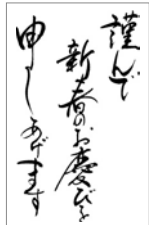 謹んで
新春のお慶びを
申しあげます